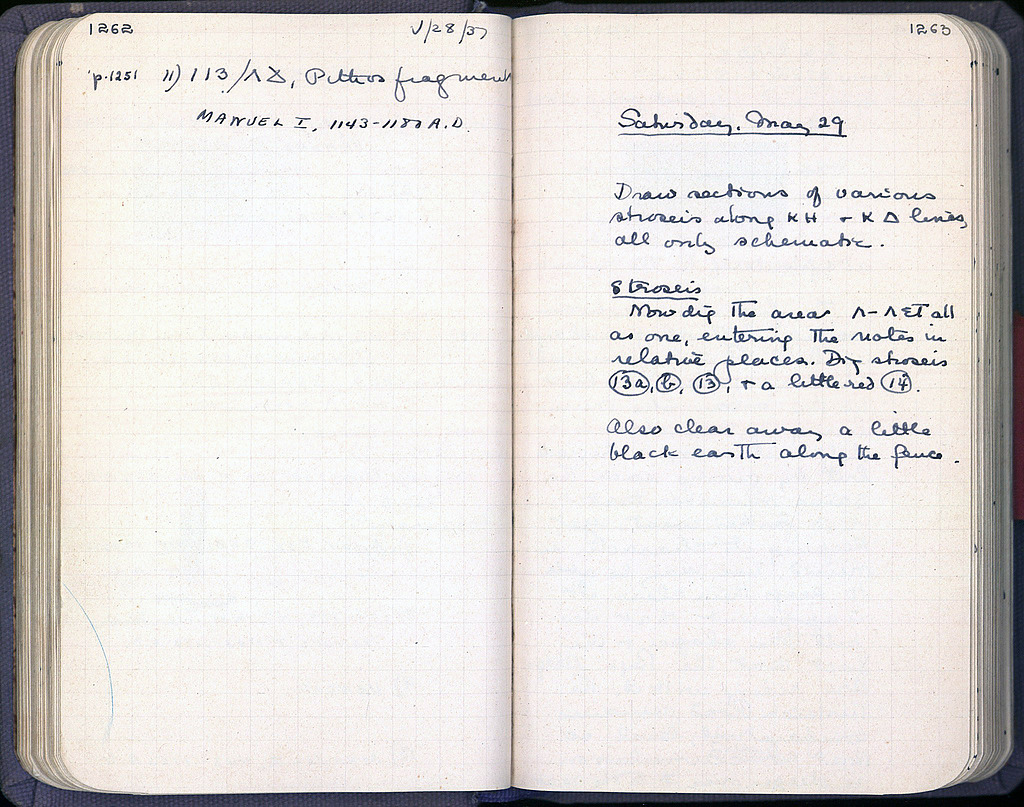 1262
V/28/37
p.1251 11) 113/ΛΔ, Pithos fragment
MANUEL I, 1143-1180 A.D.
1263
Saturday, May 29
Draw sections of various
stroseis along ΚΗ + ΚΔ lines,
all only schematic.
Stroseis
Now dig the area Λ-ΛΣΤ all
as one, entering the notes in
relative places. Dig stroseis
13a, b, 13, + a little red 14.
Also clear away a little
black earth along the fence.